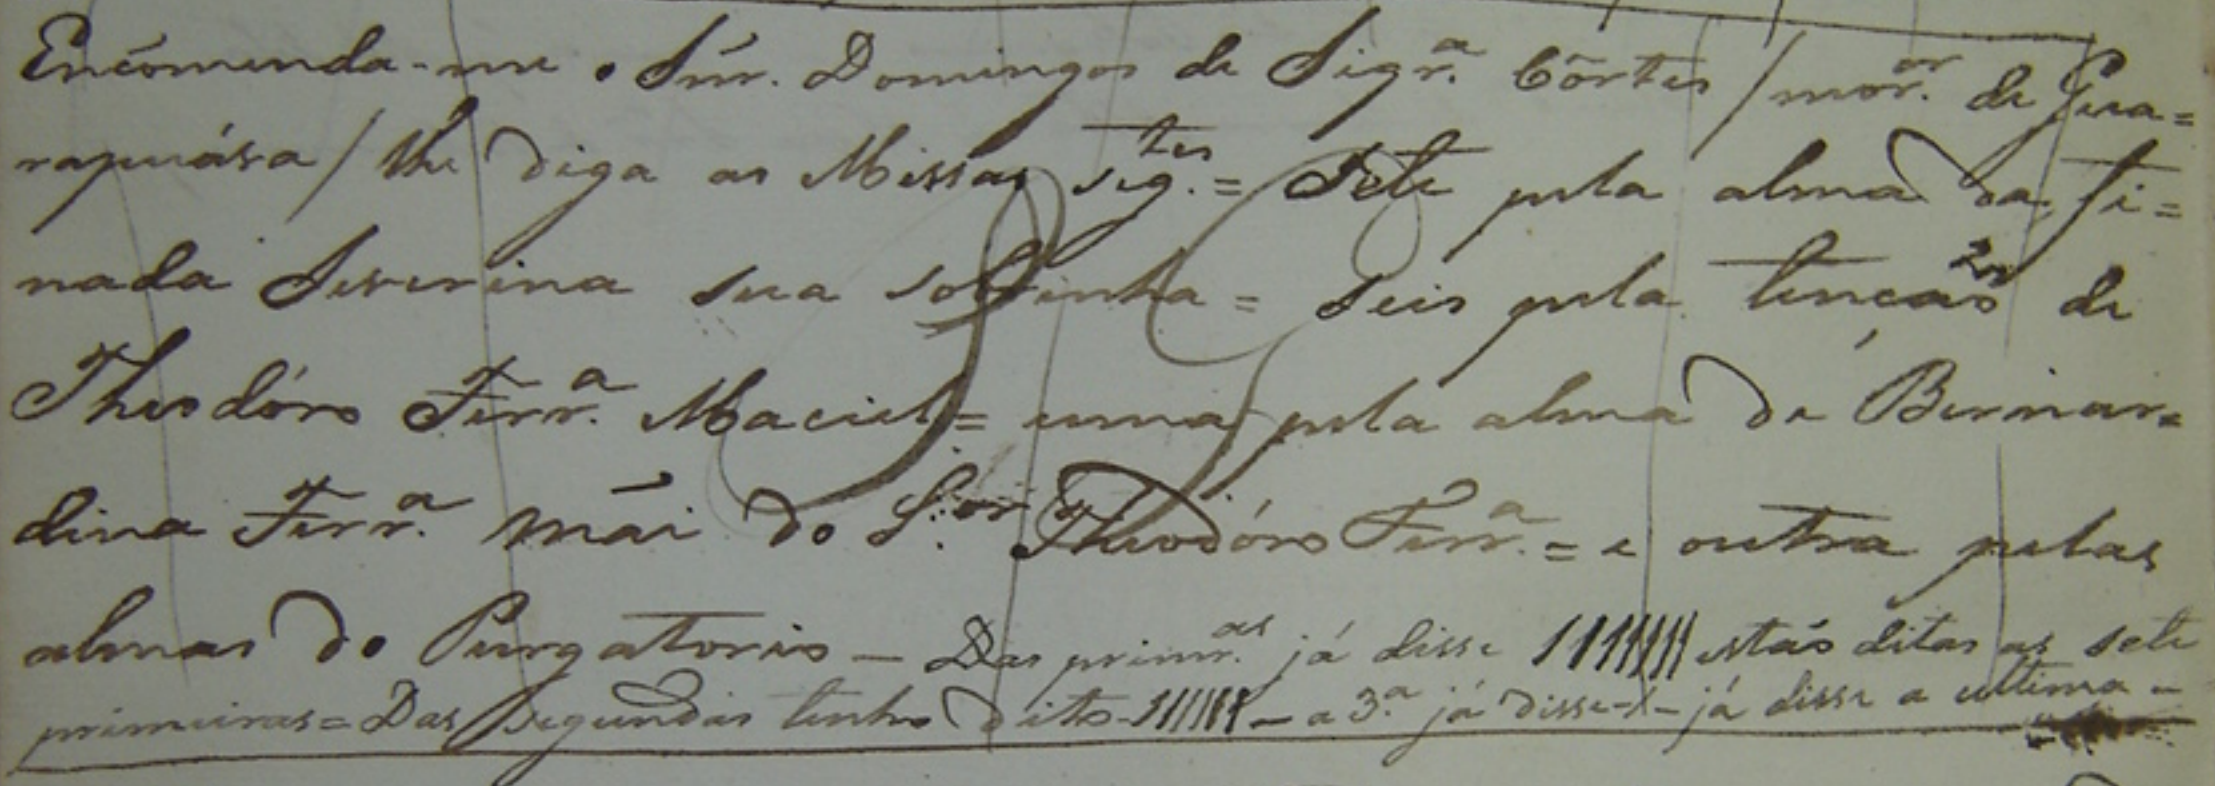 Encõmenda-me o Snr. Domingos de Siqr.ª Côrtes / mor.or de Gua=
rapuáva / lhe diga as Missas seg.tes = Sete pela alma da fi=
nada Severina sua sobrinha = seis pela tencão de
Theodóro Ferr.ª Maciel = uma pela alma de Bernar=
dina Ferr.ª mái do S.or Theodóro Ferr.ª = e outra pelas
almas do Purgatorio — Das primr.as já disse 1111111 estás ditas as sete
primeiras = Das segundas tenho dito - 111111 - a 3.ª já disse - 1 - já disse a ultima -